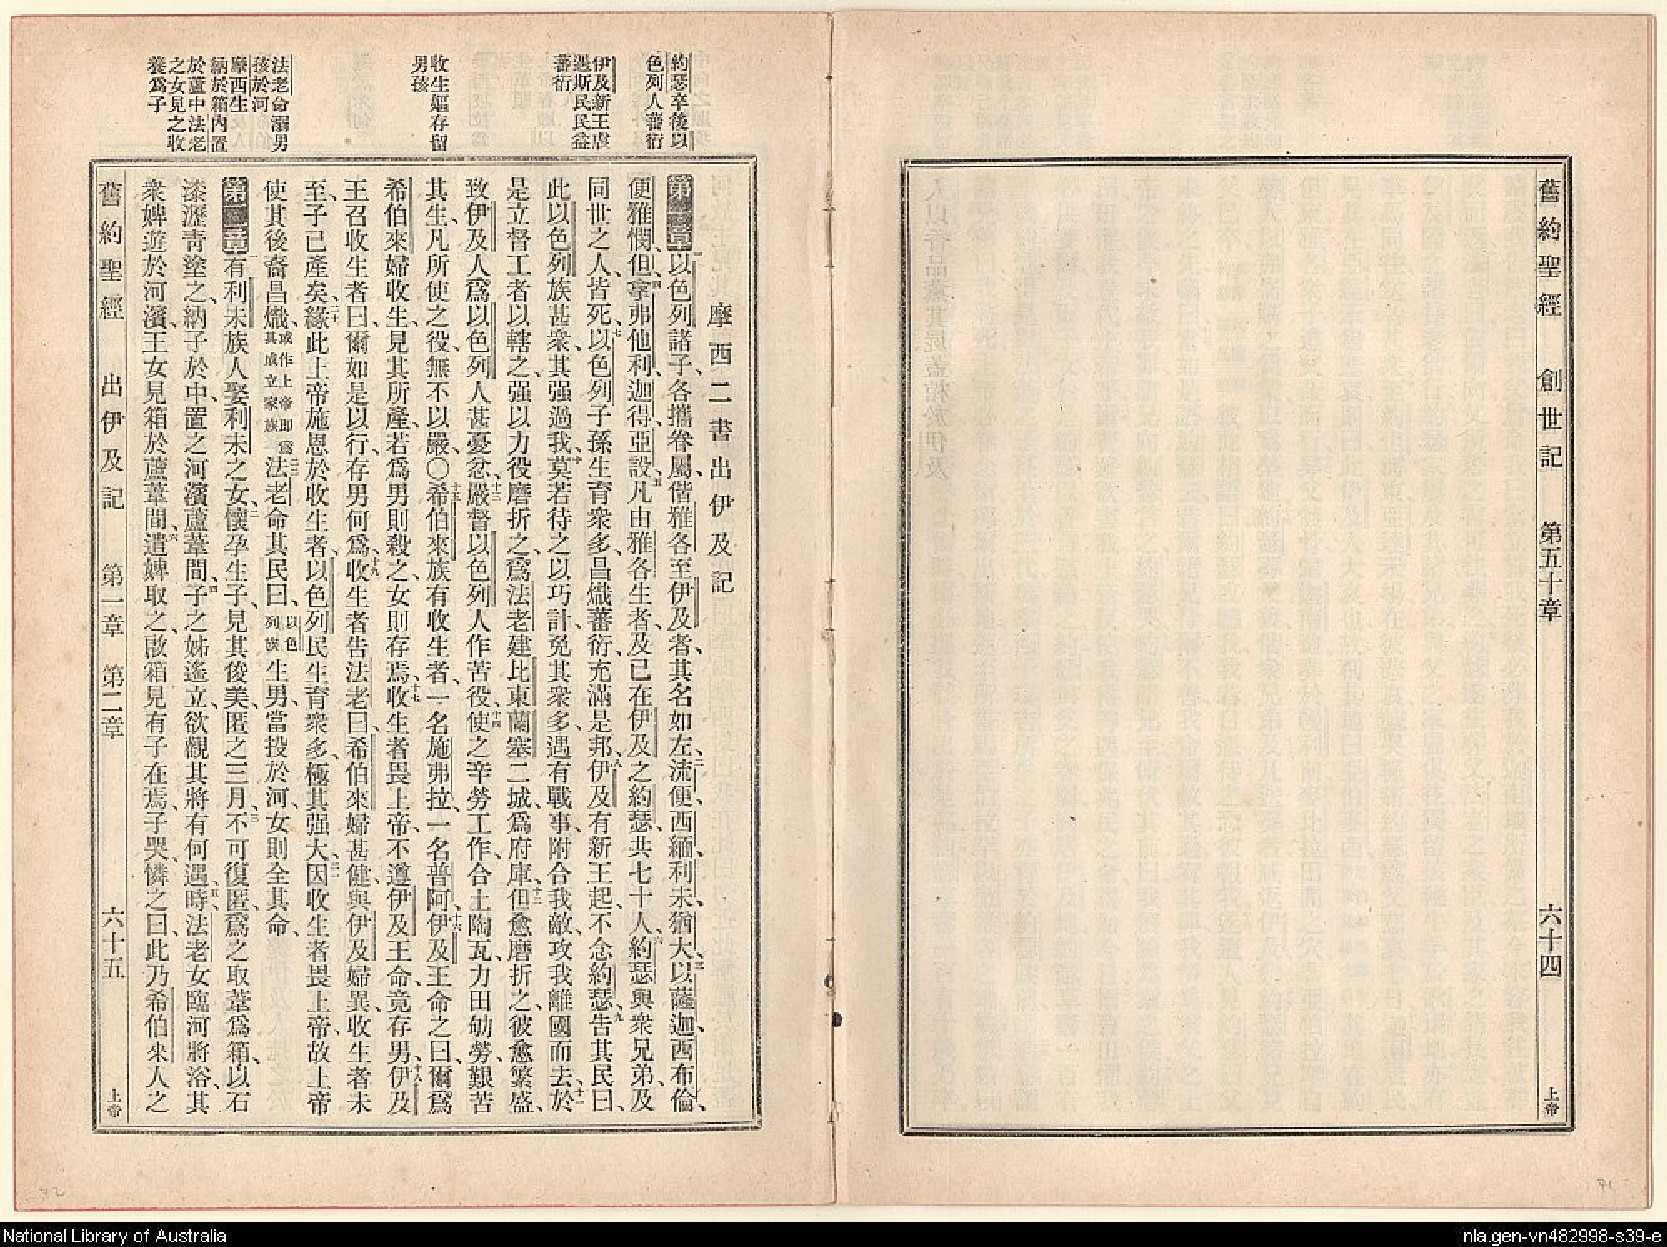 舊約聖經 創世記 第五十章 六十四 上帝
約瑟卒後以
色列人蕃衍
伊及新王虐
遇斯民民益
蕃衍
收生嫗存留
男孩
法老命溺男
孩於河
摩西生
納於箱內置
於蘆中法老
之女見之收
養爲子
摩西二書出伊及記
第一章以色列諸子、各攜眷屬、偕雅各至伊及者、其名如左、二流便、西緬、利未、猶大、三以薩迦、西布倫、
便雅憫、四但、拿弗他利、迦得、亞設、五凡由雅各生者、及已在伊及之約瑟、共七十人、六約瑟與衆兄弟、及
同世之人皆死、七以色列子孫生育衆多、昌熾蕃衍、充滿是邦、八伊及有新王起、不念約瑟、九告其民曰、
此以色列族甚衆、其强過我、十莫若待之以巧計、免其衆多、遇有戰事、附合我敵、攻我離國而去、十一於
是立督工者以轄之、强以力役磨折之、爲法老建比東蘭塞二城、爲府庫、十二但愈磨折之、彼愈繁盛、
致伊及人爲以色列人甚憂忿、十三嚴督以色列人作苦役、十四使之辛勞工作、合土陶瓦、力田劬勞、艱苦
其生、凡所使之役、無不以嚴、〇十五希伯來族有收生者、一名施弗拉、一名普阿、伊及王命之曰、十六爾爲
希伯來婦收生、見其所產、若爲男則殺之、女則存焉、十七收生者畏上帝、不遵伊及王命、竟存男、十八伊及
王召收生者曰、爾如是以行、存男何爲、十九收生者告法老曰、希伯來婦甚健、與伊及婦異、收生者未
至、子已產矣、二十緣此上帝施恩於收生者、以色列民生育衆多、極其强大、二一因收生者畏上帝、故上帝
使其後裔昌熾、或作上帝卽爲其成立家族二二法老命其民曰、以色列族生男、當投於河、女則全其命、
第二章有利未族人娶利未之女、二懷孕生子、見其俊美、匿之三月、三不可復匿、爲之取葦爲箱、以石
漆瀝青塗之、納子於中、置之河濱蘆葦間、四子之姊遙立、欲觀其將有何遇、五時法老女臨河將浴、其
衆婢遊於河濱、王女見箱於蘆葦間、六遣婢取之、啟箱見有子在焉、子哭、憐之曰、此乃希伯來人之
舊約聖經 出伊及記 第一章 第二章 六十五 上帝
72
71
National Library of Australia
nla.gen-vn482998-s39-e